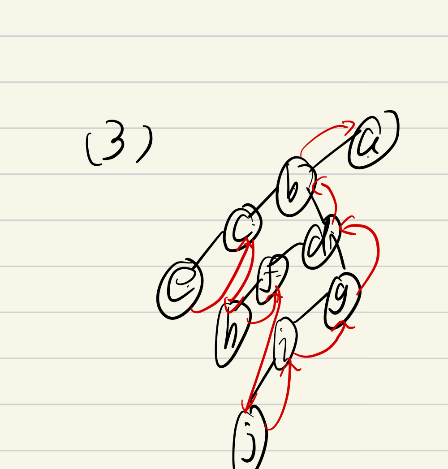 (3)
a
b
c
d
e
f
g
h
i
j